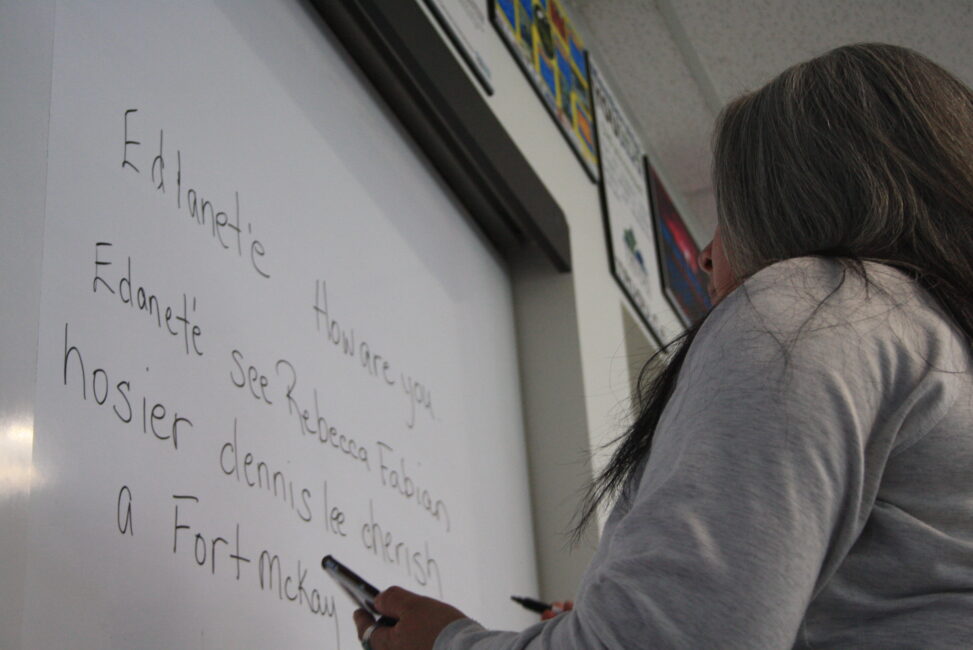 Edlanet'e How are you.
Edanet'e see Rebecca Fabian
hosier dennis lee cherish
a Fort mckay